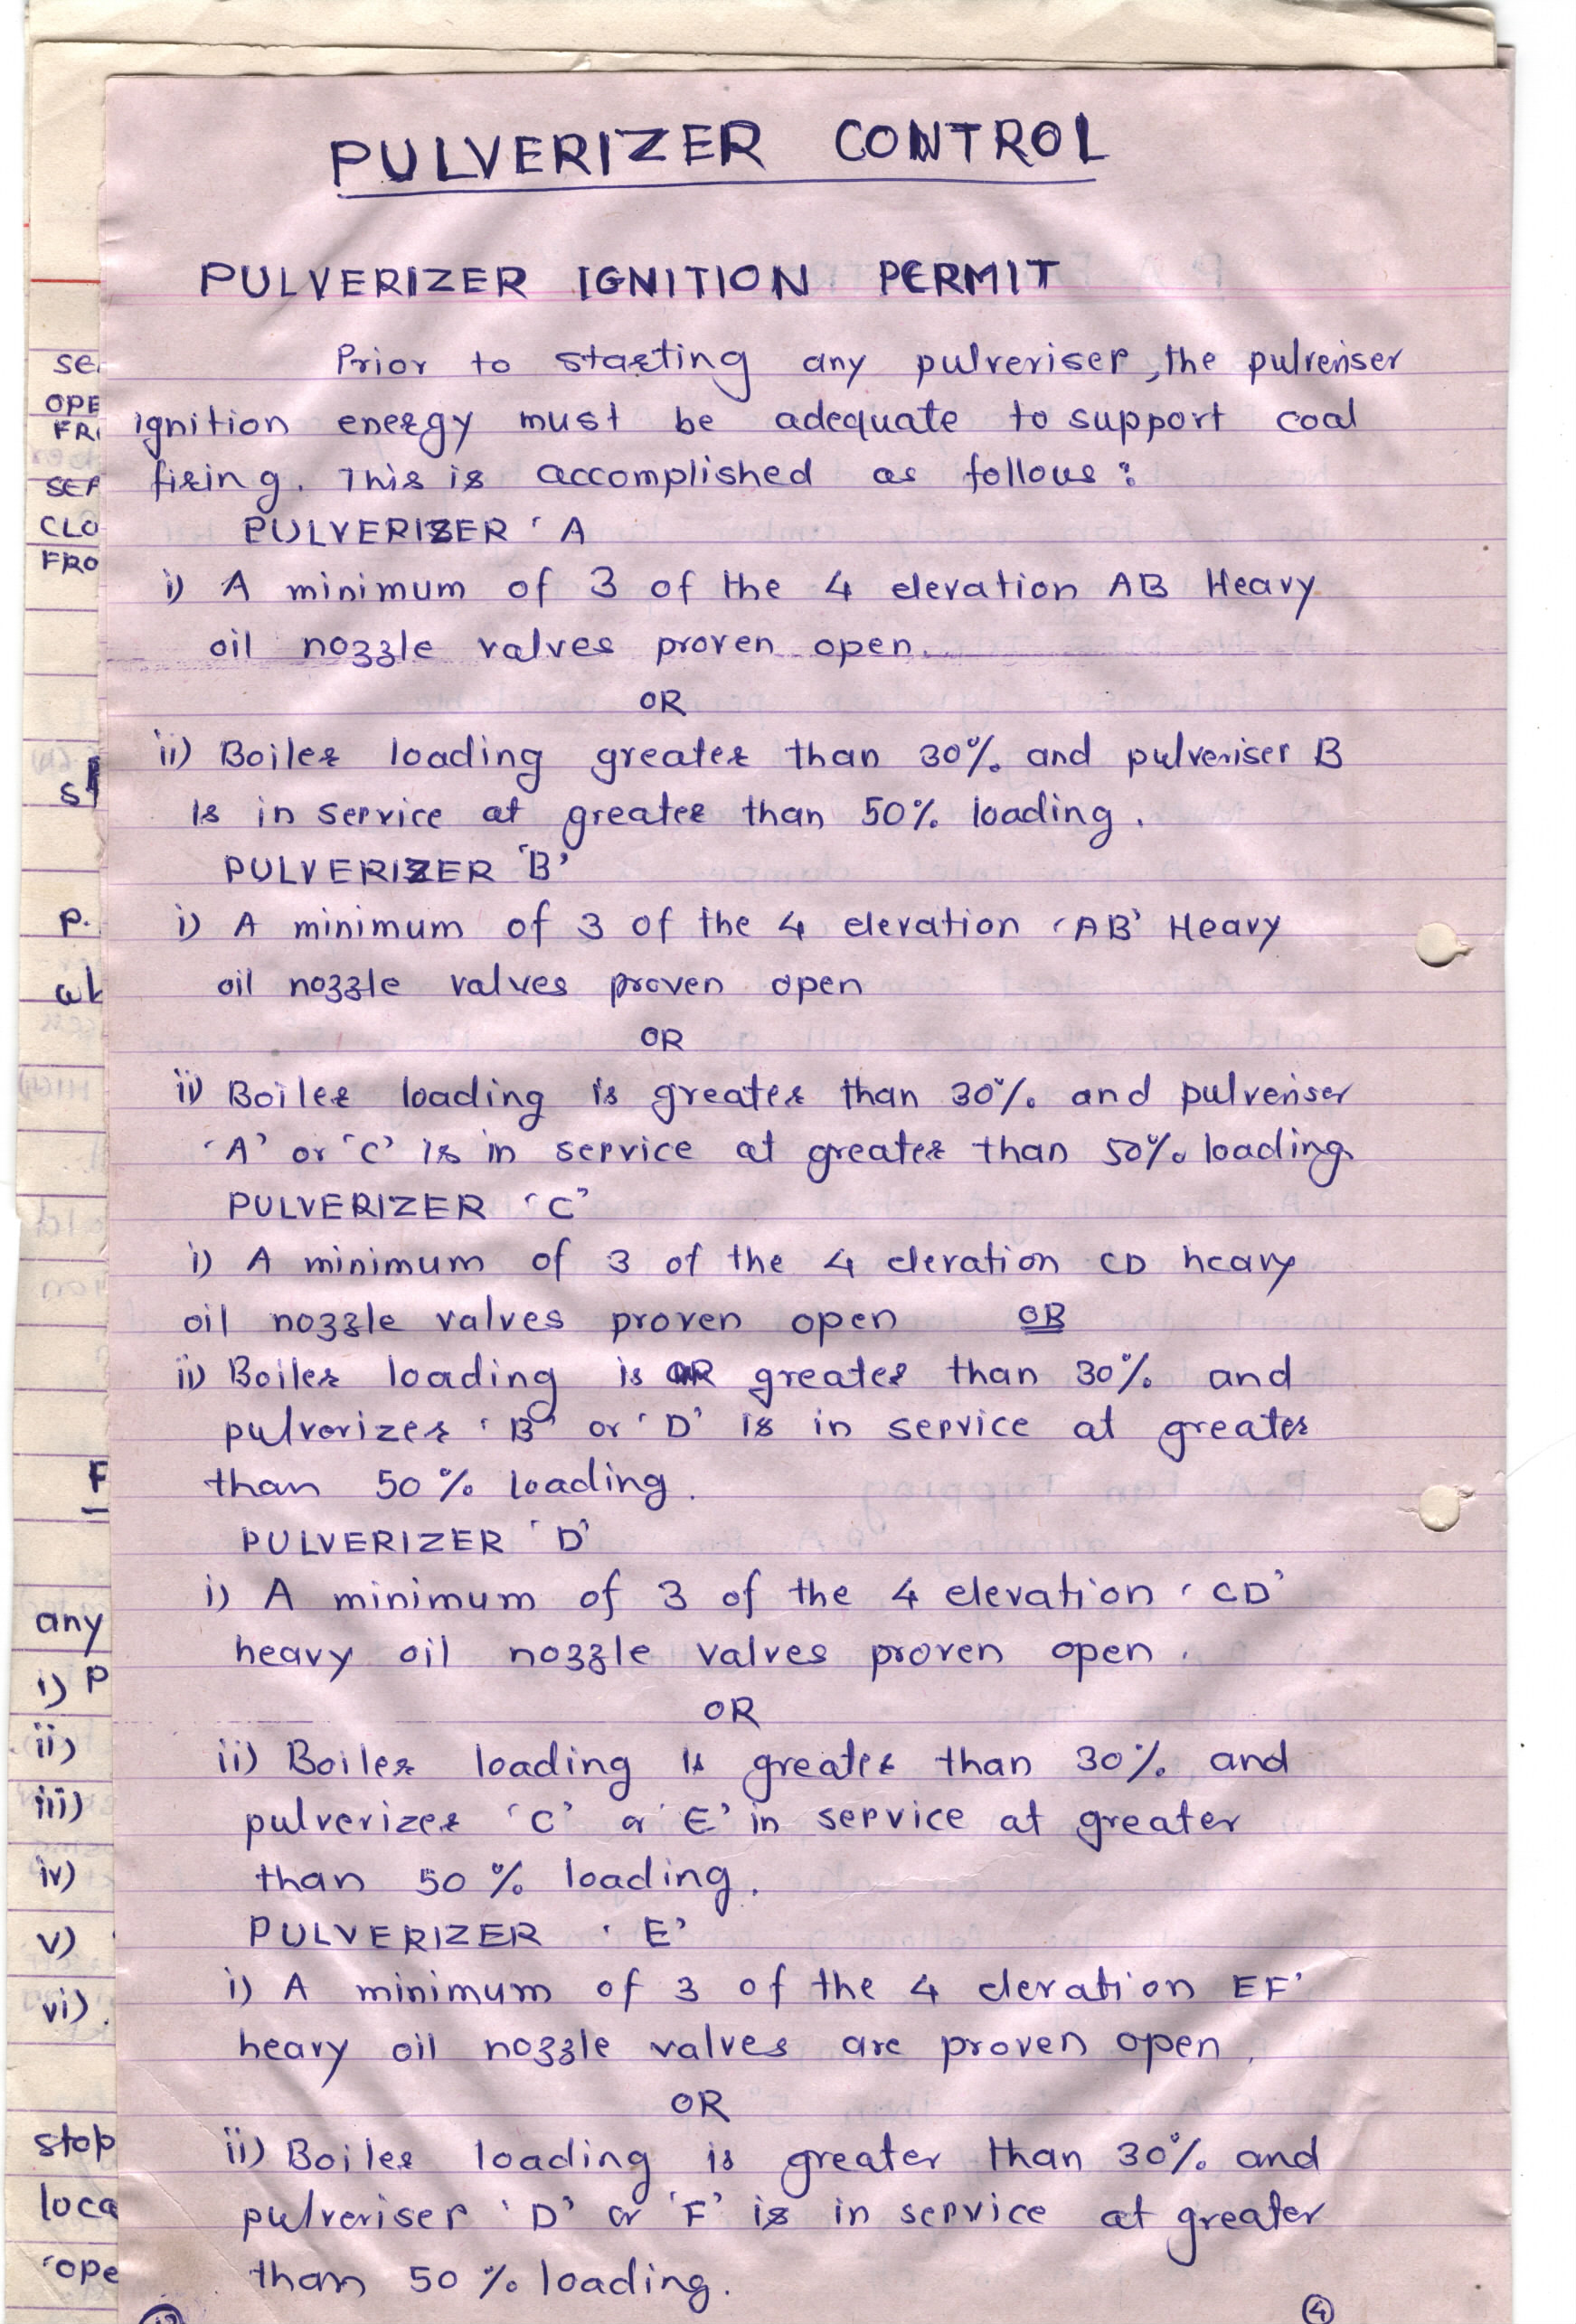 PULVERIZER CONTROL
PULVERIZER IGNITION PERMIT
Prior to starting any pulveriser, the pulveriser
ignition energy must be adequate to support coal
firing. This is accomplished as follows:
PULVERIZER 'A
i) A minimum of 3 of the 4 elevation AB Heavy
oil nozzle valves proven open.
OR
ii) Boiler loading greater than 30% and pulveriser B
is in service at greater than 50% loading.
PULVERIZER 'B'
i) A minimum of 3 of the 4 elevation 'AB' Heavy
oil nozzle valves proven open
OR
ii) Boiler loading is greater than 30% and pulveriser
'A' or 'C' is in service at greater than 50% loading
PULVERIZER 'C'
i) A minimum of 3 of the 4 elevation CD heavy
oil nozzle valves proven open OR
ii) Boiler loading is greater than 30% and
pulverizer 'B' or 'D' is in service at greater
than 50% loading.
PULVERIZER 'D'
i) A minimum of 3 of the 4 elevation 'CD'
heavy oil nozzle valves proven open.
OR
ii) Boiler loading is greater than 30% and
pulverizer 'C' or 'E' in service at greater
than 50% loading.
PULVERIZER 'E'
i) A minimum of 3 of the 4 elevation EF'
heavy oil nozzle valves are proven open.
OR
ii) Boiler loading is greater than 30% and
pulveriser 'D' or 'F' is in service at greater
than 50% loading.
4
SE
OPE
FR
SEP
CLO
FRO
P.
F
any
i) P
ii)
iii)
iv)
v)
vi).
stop
loca
'ope